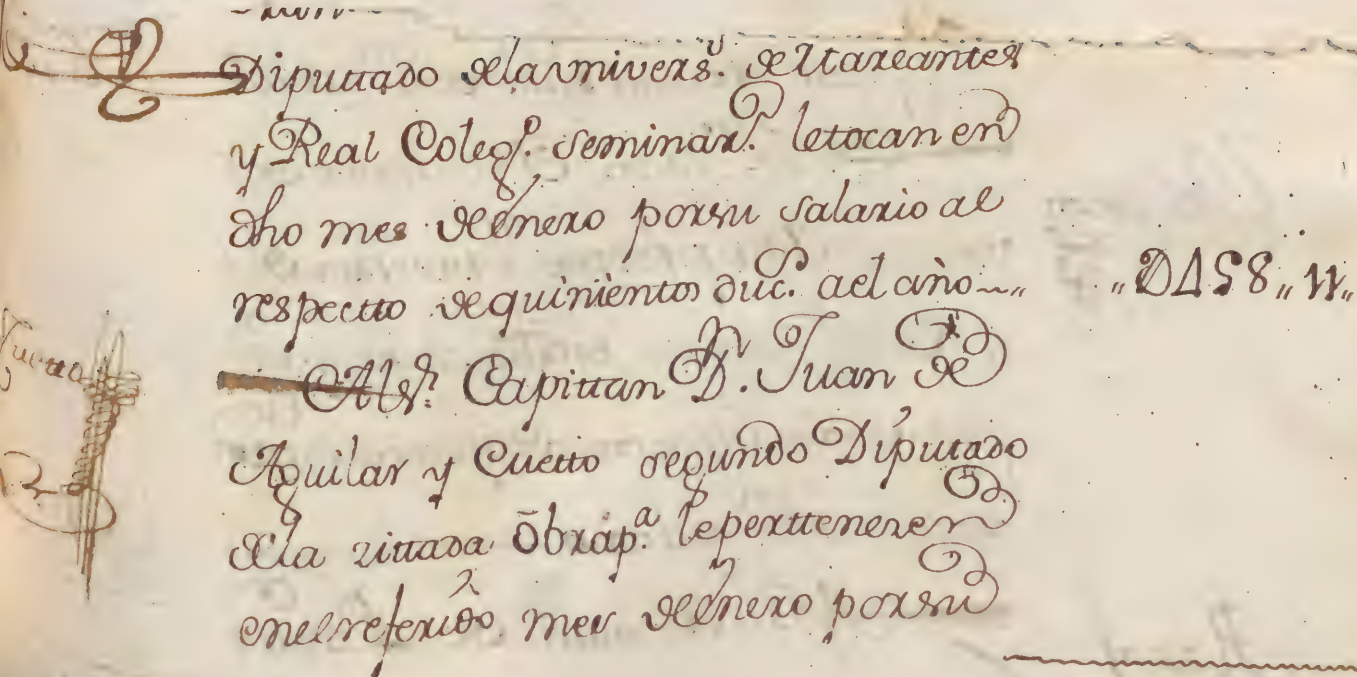 Diputtado dela univers.ᵈ de Mareantes
y Real Coleg.º seminar.º le tocan en
dho mes de Enero por su salario al
respectto de quinientos duc.ˢ a el año
Al s.ʳ Capittan D.ⁿ Juan de
Aguilar y Cuetto segundo Diputado
de la zittada Obrap.ᵃ le perttenezen
en el referido mes de Enero por su